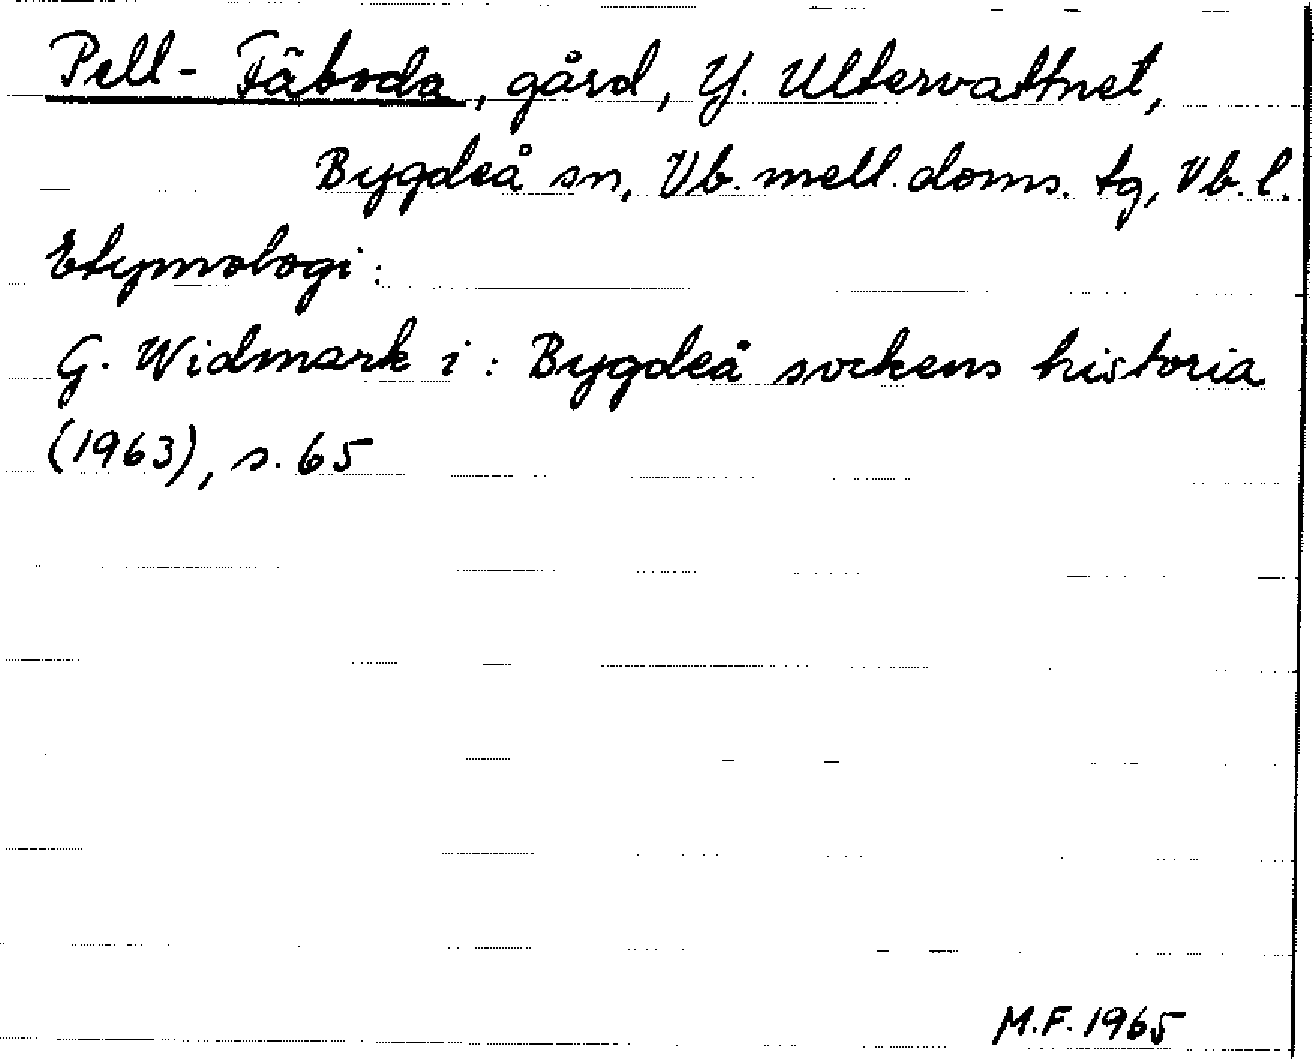 Pell-Fäboda, gård, Y. Ultervattnet,
Bygdeå sn, Vb. mell. doms. tg, Vb. l.
Etymologi:
G. Widmark i: Bygdeå sockens historia
(1963), s. 65
M.F. 1965